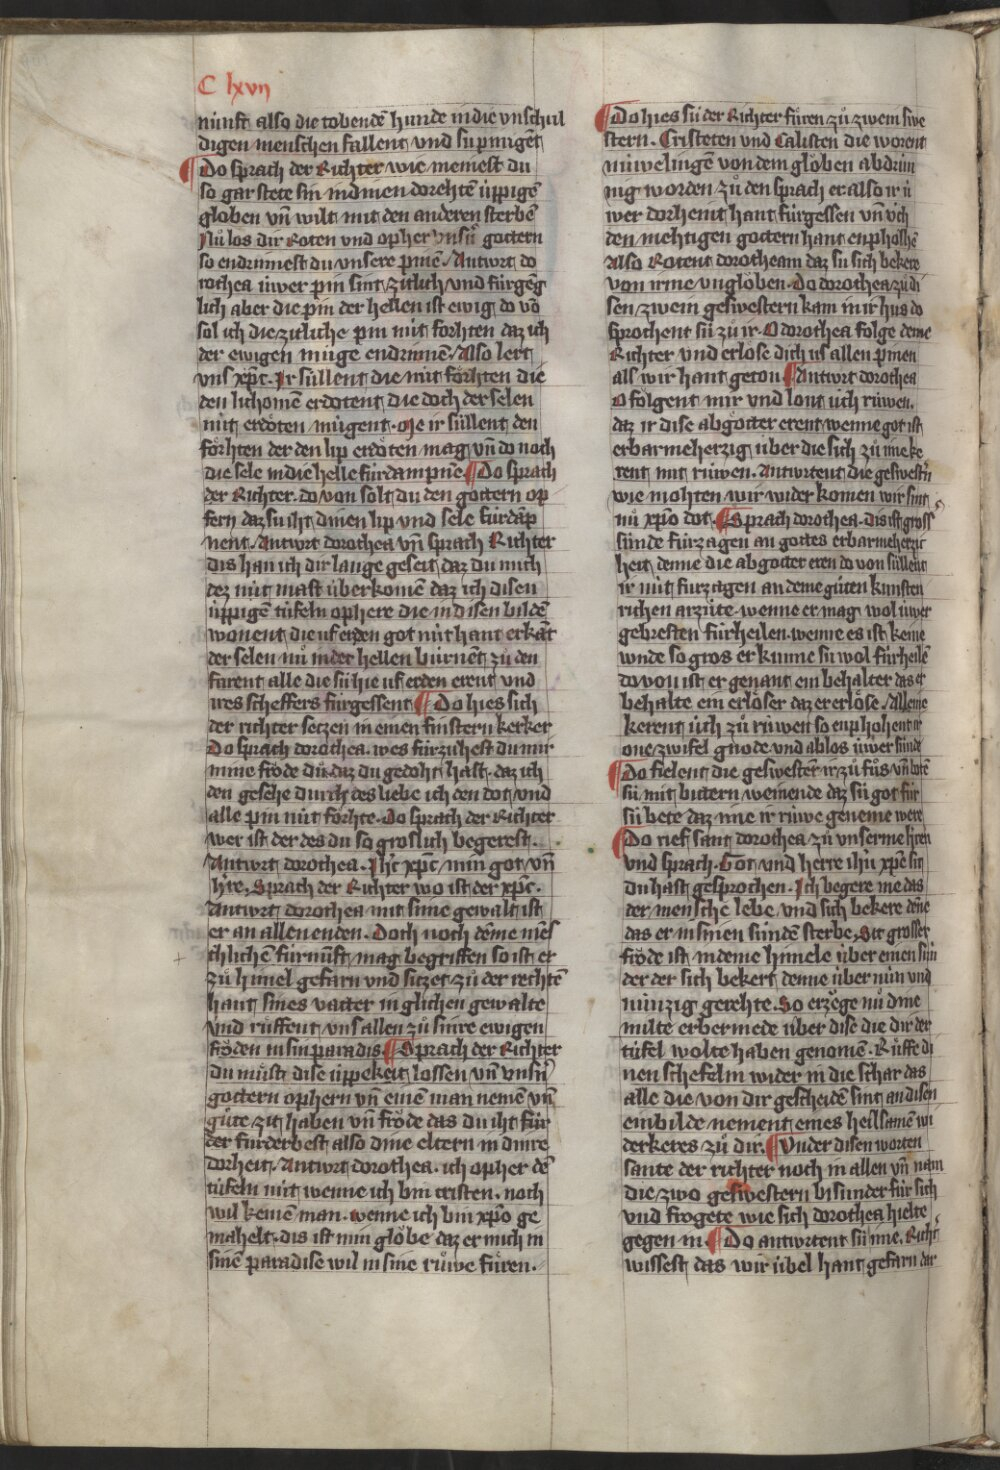 C lxvij
nunft also die tobendē hunde in die vnschul
digen menschen fallent vnd sú pingēt
Do sprach der Richter wie meinest du
so gar stete sin in dinen dorehtē úppigē
gloͤben vn̄ wilt mit den anderen sterbē
Nuͦ los dir Roten vnd opher vnsn̄ goͤttern
so endrinnest du vnsere pinē. Antwrt do
rothea úwer pin sint zitlich vnd fúrgeng
lich aber die pin der hellen ist ewig do vō
sol ich die zitliche pin nút foͤrhten daz ich
der ewigen múge endrinnē. Also lert
vns xp̄c. Ir súllent die nút foͤrhten die
den lichomē erdoͤtent die doch der selen
nút erdoͤten múgent. Me ir súllent den
foͤrhten der den lip erdoͤten mag vn̄ do noch
die sele in die helle fúrdampnē. Do sprach
der Richter. do von solt du den goͤttern op
fern daz sú iht dinen lip vnd sele fúrdāp
nent. Antwrt dorothea vn̄ sprach Richter
dis han ich dir lange geseit daz du mich
dez nút maht úberkomē daz ich disen
úppigē túfeln ophere die in disen bildē
wonent die uf erden got nút hant erkāt
der selen nuͦ in der hellen búrnēt zuͦ den
farent alle die sú hie uf erden erent vnd
ires scheffers fúrgessent. Do hies sich
der richter setzen in einen finstern kerker
Do sprach dorothea. wes fúrzúhest du mir
mine froͤde du daz du gedoht hast. daz ich
den gesehe durch des liebe ich den dot vnd
alle pin nút foͤrhte. Do sprach der Richter
wer ist der des du so groslich begerest.
Antwrt dorothea. Ih̄c xp̄c min got vn̄
h̄re. Sprach der Richter wo ist der xp̄c.
Antwrt dorothea mit sime gewalt ist
er an allen enden. Doch noch deme mēs
chlichē fúrnunft mag begriffen so ist er
zuͦ himel gefarn vnd sitzet zuͦ der rechtē
hant sines vatter in glichen gewalte
vnd ruͤffent vns allen zuͦ sinre ewigen
froͤden in sin paradis. Sprach der Richter
du muͦst dise úppekeit lossen vn̄ vnsn̄
goͤttern ophern vn̄ einē man nemē vn̄
guͤte zit haben vn̄ froͤde das du iht fúr
der fúrderbest also dine eltern in dinre
dorheit. Antwrt dorothea. ich opher dē
túfeln nút wenne ich bin cristen. noch
wil keinē man. wenne ich bin xp̄o ge
mahelt. dis ist min gloͤbe daz er mich in
sinē paradise wil in sine ruͦwe fuͤren.
Do hies sú der Richter fuͤren zuͦ zwein swe
stern. Cristeten vnd Calisten die worent
núwelingen von dem gloͤben abdrún
nig worden zuͦ den sprach er also ir ú
wer dorheit hant fúrgessen vn̄ v́ch
den mehtigen goͤttern hant enpholhē
Also Rotent dorotheam daz sú sich bekere
von irme vngloͤben. Do dorothea zuͦ di
sen zwein geswestern kam in ir hus do
sprochent sú zuͦ ir. O dorothea folge deme
Richter vnd erloͤse dich us allen pinen
als wir hant geton. Antwrt dorothea
O folgent mir vnd lont úch rúwen.
daz ir dise abgoͤtter erent wenne got ist
erbarmeherzig úber die sich zuͦ ime ke
rent mit rúwen. Antwrtent die geswestn̄
wie moͤhten wir wider komen wir sint
nuͦ xp̄o dot. Sprach dorothea. dis ist gross
súnde fúrzagen an gottes erbarmeherzi
keit denne die abgoͤtter eren do von súllent
ir nút fúrzagen an deme guͤten kunsten
richen arzite. wenne er mag wol úwer
gebresten fúrheilen. wenne es ist keine
wnde so gros er kunne sú wol fúrheilē
do von ist er genant ein behalter das er
behalte ein erloͤser daz er erloͤse. Alleine
kerent úch zuͦ rúwen so enphohent ir
one zwifel gnode vnd ablos úwer súnde
Do fielent die geswestern ir zuͦ fuͦs vn̄ botē
sú mit bittern weinende daz sú got fúr
sú bete daz ime ir rúwe geneme were
Do rief sant dorothea zuͦ vnserme h̄ren
vnd sprach. Got vnd herre ih̄u xp̄e sit
du hast gesprochen. Ich begere me das
der mensche lebe vnd sich bekere dēne
das er in sinen súndē sterbe. Sit grosser
froͤde ist in deme himele úber einen súnd
der der sich bekert denne úber nún vnd
núnzig gerehte. So erzoͤge nuͦ dine
milte erbermede úber dise die dir der
túfel wolte haben genomē. Ruͤffe di
nen schefelin wider in die schar das
alle die von dir gescheidē sint an disen
einbilde nement eines heilsamē wi
derkeres zuͦ dir. Vnder disen worten
sante der richter noch in allen vn̄ nam
die zwo geswestern bisunder fúr sich
vnd frogete wie sich dorothea hielte
gegen in. Do antwrtent sú ime. Richt̄
wissest das wir úbel hant gefarn dar